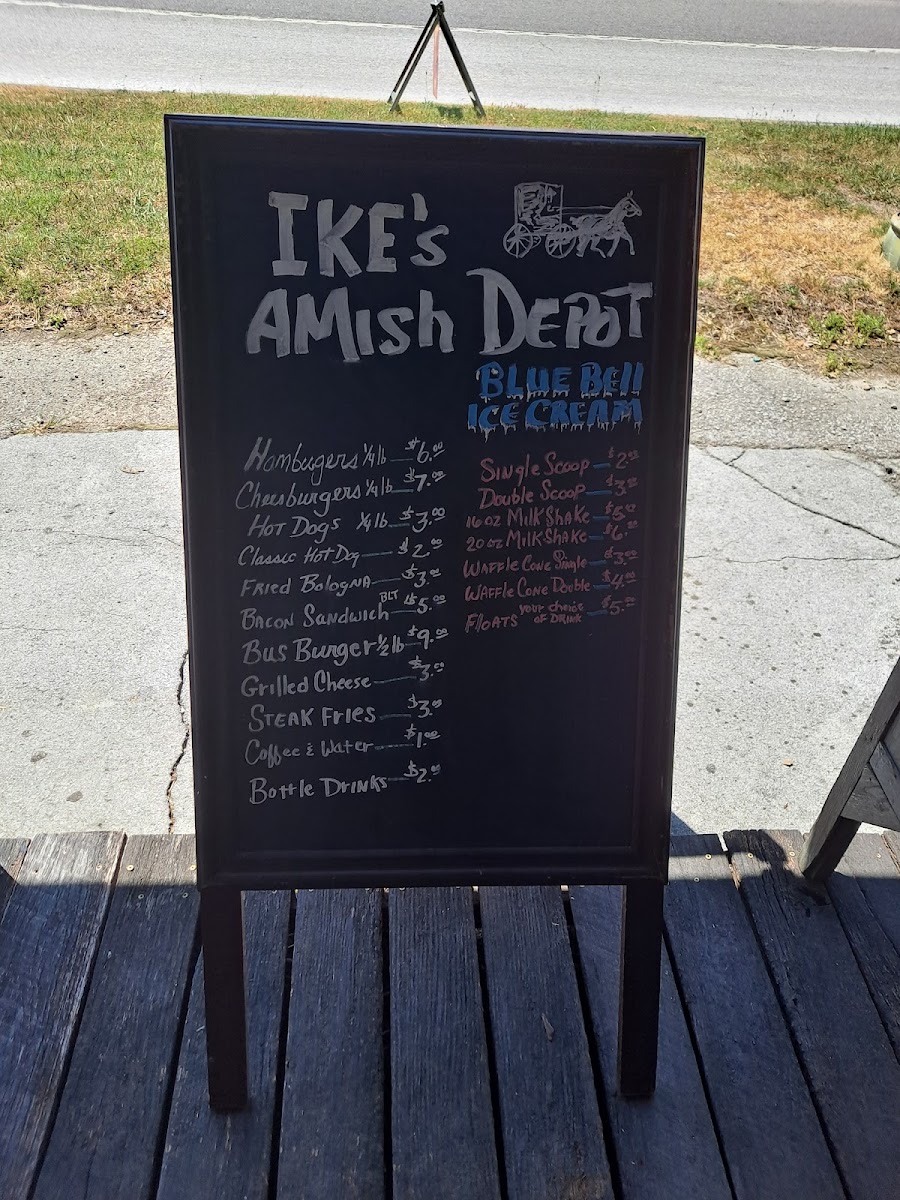 IKE's
AMIsh DEPOT
BLUE BEll
ICE CREAM
Hambugers 1/4 lb — $6.00
Cheesburgers 1/4 lb — $7.00
HOT DOGS 1/4 lb — $3.00
Classic Hot Dog — $2.00
FRIED BOLOGNA — $3.00
BACON SANDWICH BLT — $5.00
BUS BURGER 1/2 lb — $9.00
GRILLED CHEESE — $3.00
STEAK FRIES — $3.00
Coffee & Water — $1.00
Bottle DRINKS — $2.00
Single Scoop — $2.00
Double Scoop — $3.00
16 oz MILK SHAKE — $5.00
20 oz MILK SHAKE — $6.00
WAFFLE CONE Single — $3.00
WAFFLE CONE Double — $4.00
FLOATS your choice OF DRINK — $5.00